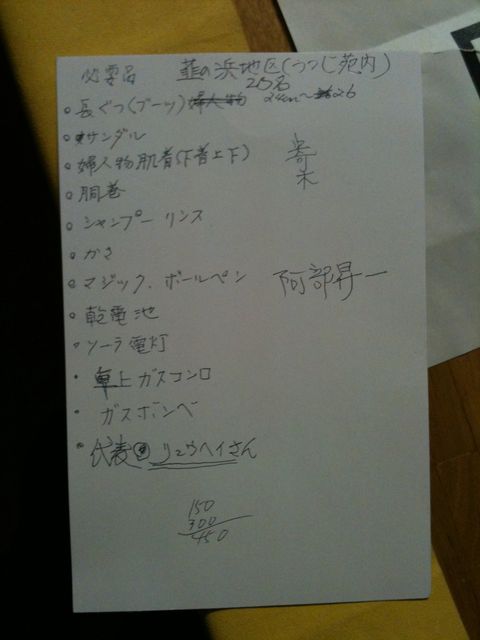 必要品 韮の浜地区(つつじ苑内)
25名
長ぐつ(ブーツ) 婦人物 24cm〜26
サンダル
婦人物肌着(下着上下)
胴巻
シャンプー リンス
かさ
マジック、ボールペン
乾電池
ソーラ電灯
卓上ガスコンロ
ガスボンベ
代表 リュウヘイさん
阿部昇一
150
300
450